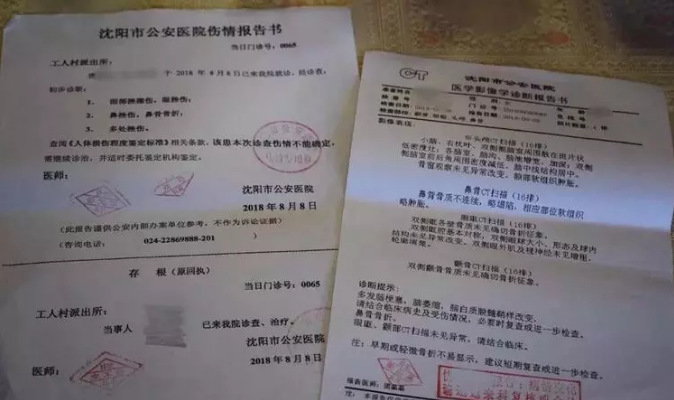 沈阳市公安医院伤情报告书
当日门诊号: 0065
工人村派出所:
于 2018 年 8 月 8 日已来我院就诊, 经诊查,
初步诊断:
1.
2. 鼻挫伤, 鼻骨骨折;
3. 多处挫伤。
查阅《人体损伤程度鉴定标准》相关条款, 该患本次诊查伤情不能确定,
需继续诊治, 并适时委托鉴定机构鉴定。
医师:
沈阳市公安医院
2018 年 8 月 8 日
(此报告谨供公安内部办案单位参考, 不作为诉讼证据)
(咨询电话: 024-22869888-201 )
存 根(原回执)
当日门诊号: 0065
工人村派出所:
当事人 已来我院诊查、治疗。
医师:
沈阳市公安医院
2018 年 8 月 8 日
CT
沈阳市公安医院
医学影像学诊断报告书
影像表现:
鼻骨CT扫描(16排)
鼻骨骨质不连续, 略塌陷, 相应部位软组织
略肿胀。
眼眶CT扫描(16排)
双侧眶各壁骨质未见确切骨折征象。
颧骨CT扫描(16排)
双侧颧骨骨质未见确切骨折征象。
诊断提示:
多发脑梗塞, 脑萎缩, 脑白质脱髓鞘样改变。
请结合临床病史及受伤情况, 必要时复查或进一步检查。
鼻骨骨折。
眼眶、颧部CT扫描未见异常, 请结合临床。
注: 早期或轻微骨折不易显示, 建议短期复查或进一步检查。